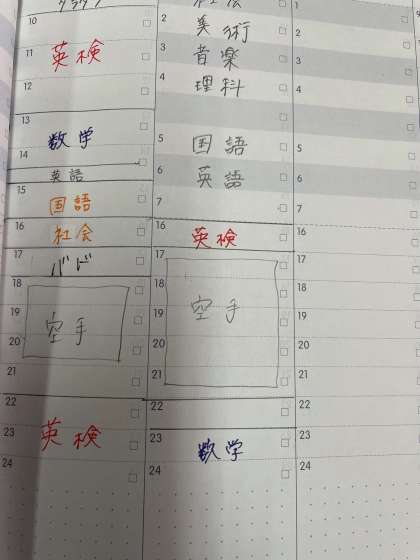 10
11 英検
12
13
数学
14
英語
15
国語
16 社会
17 バド
18
19 空手
20
21
22
23 英検
24
社会
2 美術
3 音楽
4 理科
5 国語
6 英語
7
16 英検
17
18
19 空手
20
21
22
23 数学
24
1
2
3
4
5
6
7
16
17
18
19
20
21
22
23
24